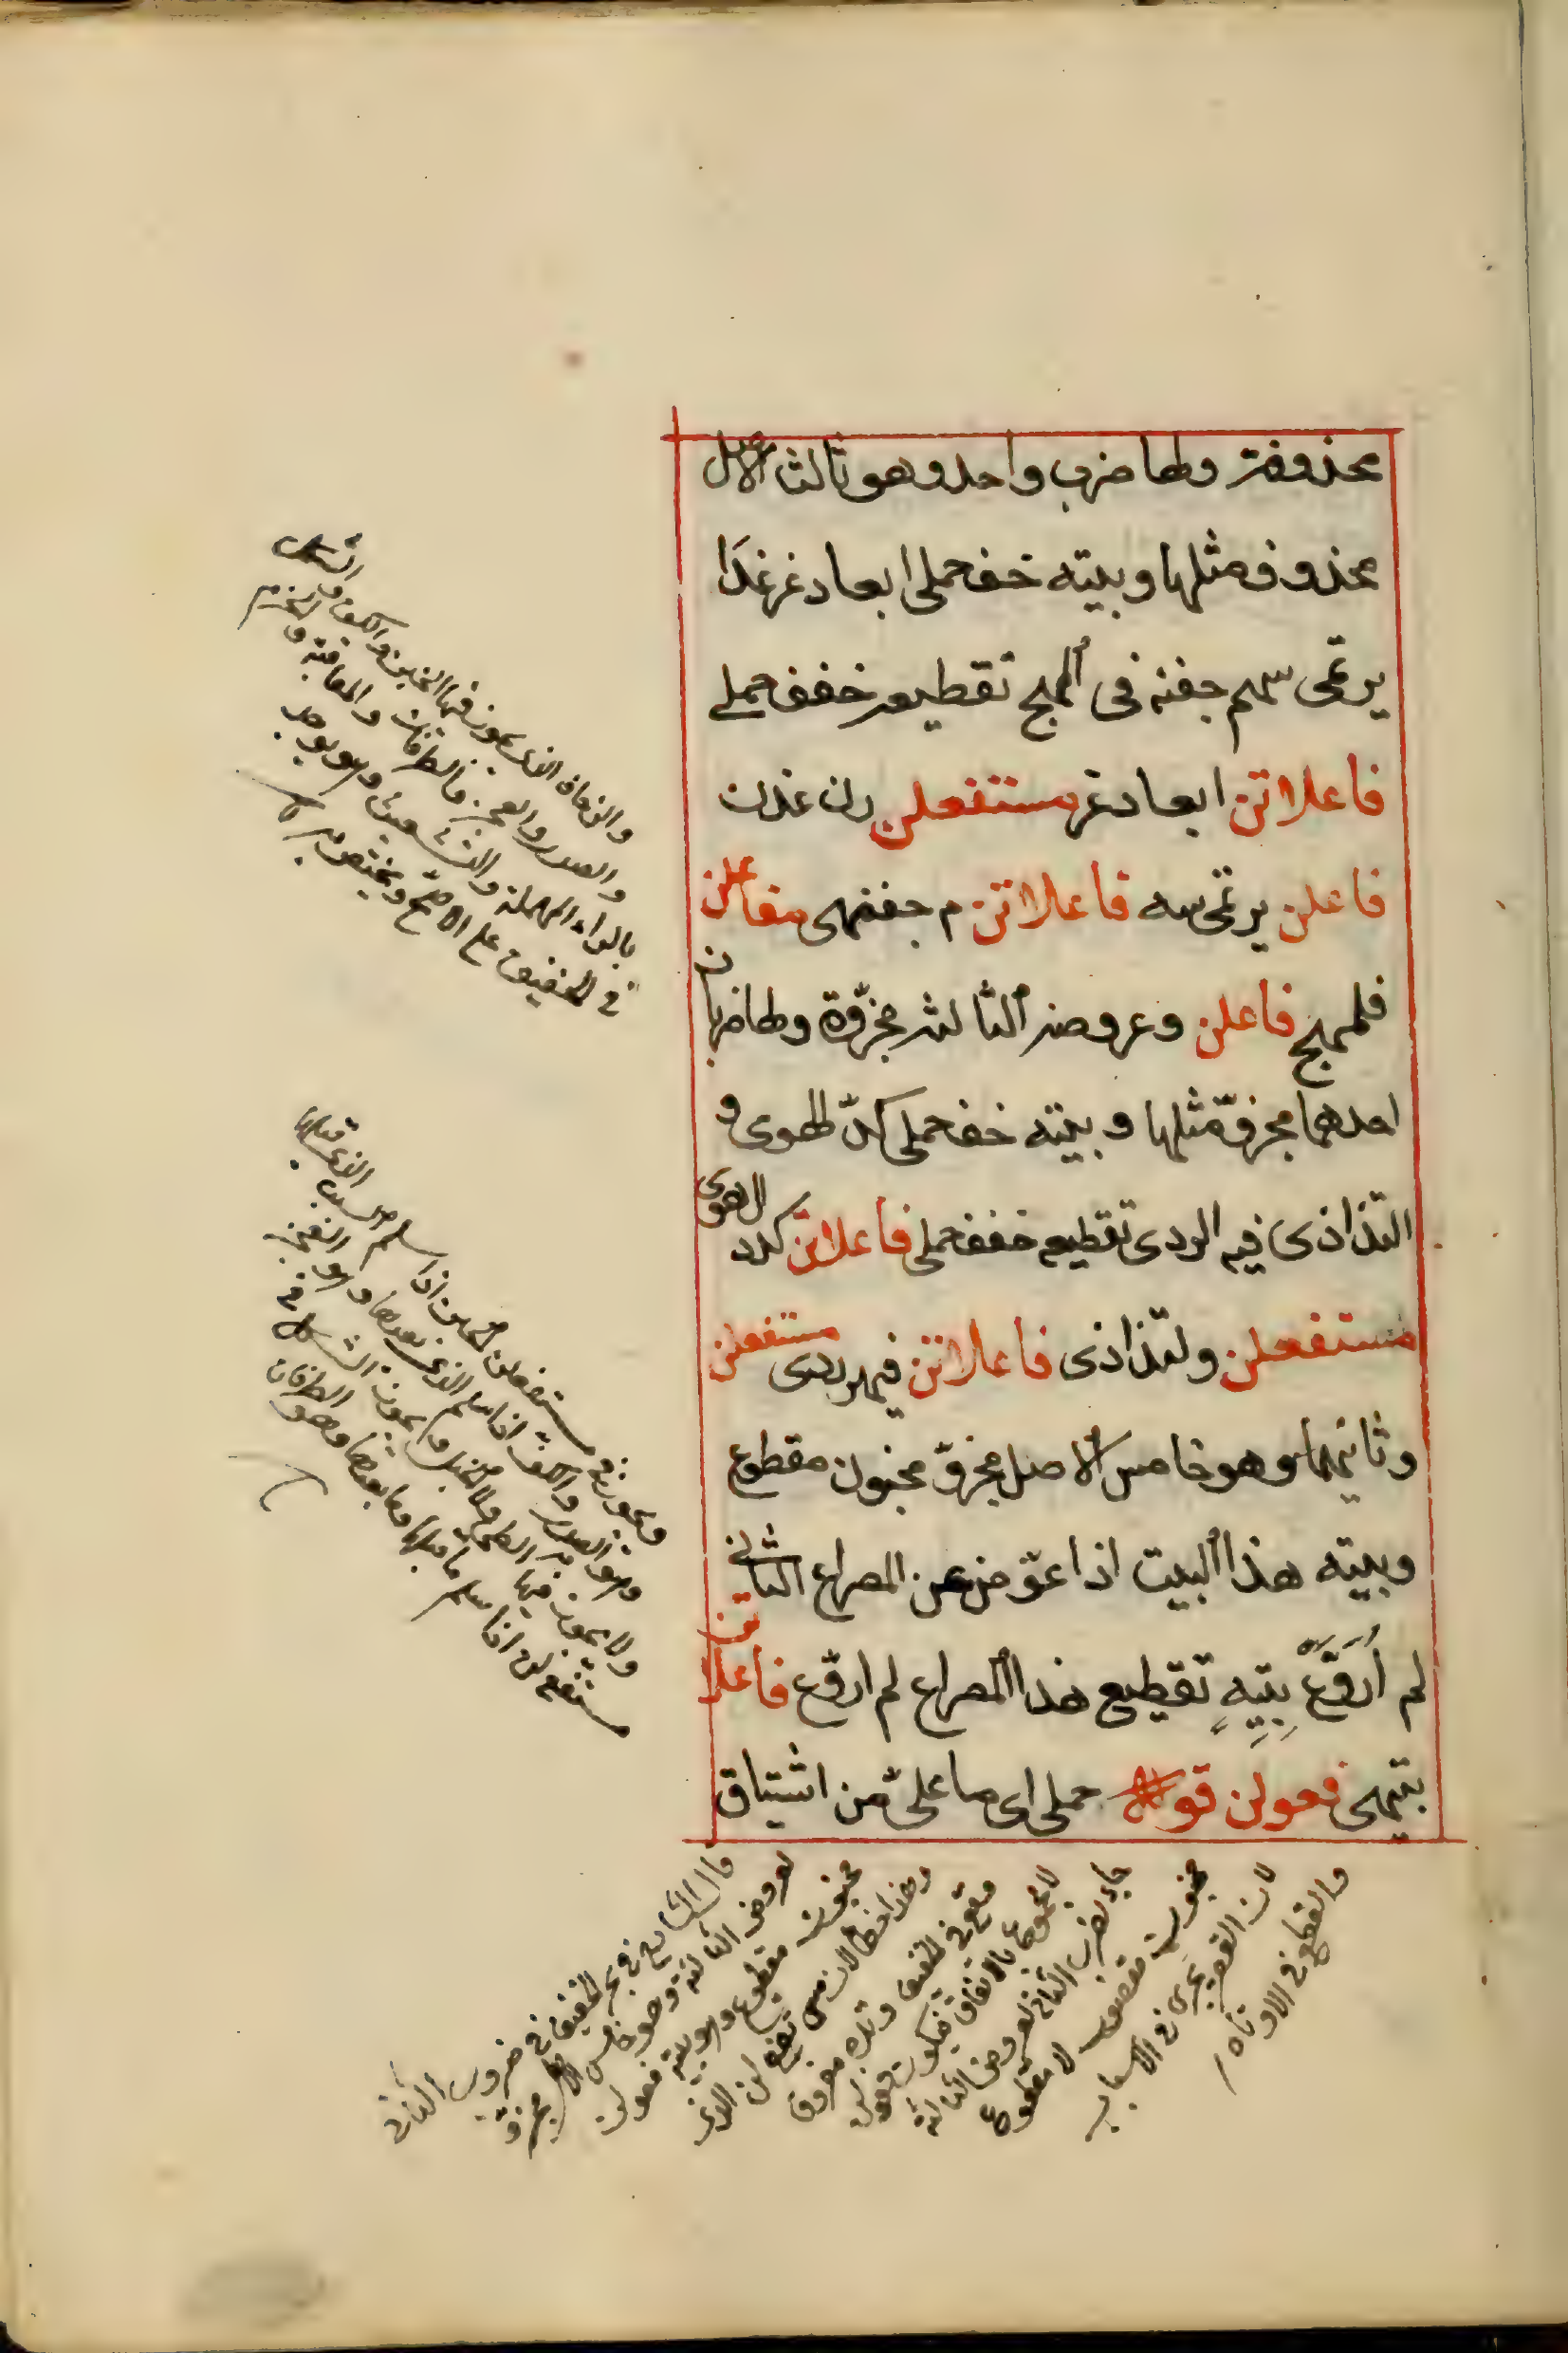 محذوفة ولها ضرب واحد وهو ثالث الاصل
محذوف مثلها وبيته خف حملى ابعاد غر غدَا
يرتمى سهم جفنه فى المهج تقطيعه خفف حملى
فاعلاتن ابعاد غر مستفعلن رن غدن
فاعلن يرتمى سه فاعلاتن م جفنهى مفاعلن
فلمهج فاعلن وعروضه الثالثة مجزوّة ولها ضربان
احدهما مجزوّ مثلها وبيته خف حملى كدّ الهوى و
التذاذى فيه الردى تقطيعه خفف حملى فاعلاتن كدد الهوى
مستفعلن ولتذاذى فاعلاتن فيهردى مستفعلن
وثانيهما وهو خامس الاصل مجزوّ مخبون مقطوع
وبيته هذا البيت اذا عوّض عن المصراع الثانى
لم اُرَوَّعْ بِتِيهِ تقطيع هذا المصراع لم اروّع فاعلاتن
بتيهى فعولن قوله حملى اى ما علىّ من اشتياق
والزحاف الذى يجوز فيها الخبن والكف والشكل
والصدر والعجز والطرفان والمعاقبة و
بالراء المهملة والتشعيث وهو يوجد
فى الخفيف على الاصح ويختص به
ويجوز فى مستفعلن خبن اذا سلم السبب الذى قبلها
وهو الصدر والكف اذا سلم الذى بعدها وهو العجز
ولا يجوز فيها الطى ولا الخبل ويجوز الشكل فى
مستفعلن اذا سلم ما قبلها وما بعدها وهو الطرفان
قال الشارح فى بحر الخفيف فى ضروب الثانى
لعروض الثالثة وهو خامس الاصل مجزوّ
مخبون مقطوع وبيته فعولن
وهذا خطأ لان مس تفع لن الذى
وقع فى الخفيف وتده مفروق
لا مجموع بالاتفاق فيكون فعولن
جاء لضرب الثانى لعروض الثالثة
مخبون مقصور لا مقطوع
لان القصر يجرى فى الاسباب
والقطع فى الاوتاد